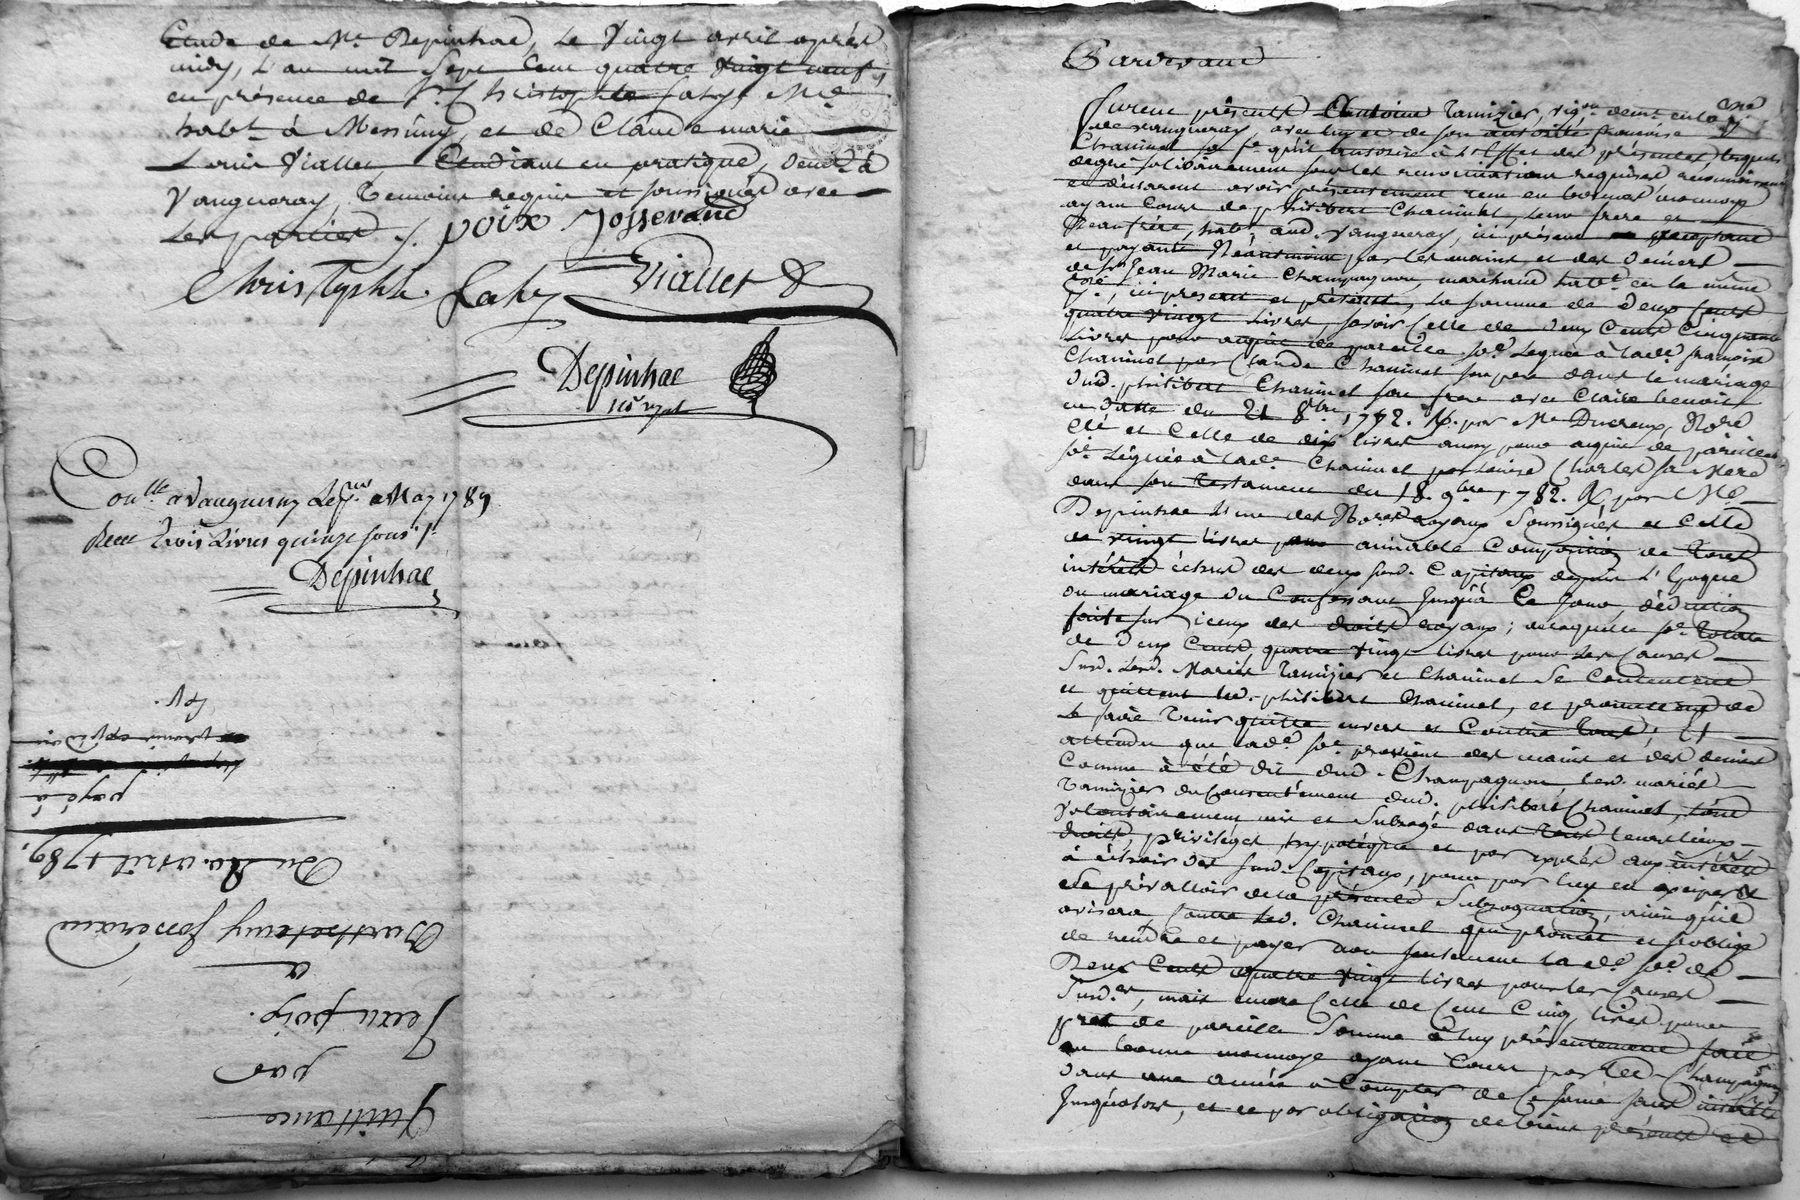 Etude de Me Depinhac, Le Vingt avril après
midy, L'an mil Sept Cent quatre Vingt neuf,
en présence de Sr Christophle Fahy Md
habt à Messimy, et de Claude marie
Louis Viallet, Etudiant en pratique, demt à
Vaugneray, Temoins requis et soussignés avec
Les parties /. poix Josserand
Christophle Fahy Viallet
Depinhac
nore royal
Conlle à Vaugneray Le 1er May 1789
Recu trois Livres quinze sous
Depinhac
Quittance
par
Jean poix
a
Barthelemy Josserand
Du 20. avril 1789.
payé à
Pardevant
furent présents Antoine Tamizier, vigon demt en la psse
de Vaugneray, avec luy et de son autorité françoise
Chaninel sa fe qu'il autorise à l'effet des présentes, lesquels
de gré solidairement sous les renonciations requises reconnoissent
et déclarent avoir présentement reçu en bonnes monnoyes
ayant Cours de philibert Chaninel, leur frere et
Beaufrère, habt aud. Vaugneray, ici présent acceptant
et payant Néantmoins par les mains et des deniers
de Sr Jean Marie Champagnon, marchand habt en la même
psse, ici présent et présent, la somme de Deux Cents
quatre Vingt Livres, savoir Celle de deux Cents Cinquante
Livres pour acquit de pareille se Leguée à lade françoise
Chaninel par Claude Chaninel son pere dans le mariage
dud. philibert Chaninel son frere avec Claire benoit
en datte du 21 8bre 1772. Rx. par Me Ducreux, Nore
Clé et Celle de dix livres aussy pour acquit de pareille
se Léguée à lade Chaninel par Louise Charles sa Mere
dans son testament du 18. 9bre 1782. Rx par Me
Depinhac L'un des Nores royaux Soussignés et Celle
de vingt livres pour aimable Composition de tous
intérêts échus des deux susd. Capitaux depuis L'Epoque
du mariage du Confessant Jusqu'à Ce Jour, déduction
faite sur iceux des droits royaux; de laquelle se totale
de Deux Cents quatre Vingt livres pour Les Causes
Susd. Lesd. Mariés Tamizier et Chaninel Se Contentent
et quittent led. philibert Chaninel, et promettent de
Le faire tenir quitte envers et Contre tous; Et
attendu que lade se provient des mains et des deniers
Comme à été dit dud. Champagnon lesd. mariés
Tamizier du Consentement dud. philibert Chaninel, l'ont
Volontairement mis et Subrogé dans tous leurs lieux,
droits, privilèges hypotéque et par exprès aux intérêts
à échoir des susd. Capitaux, pour par luy en exciper et
se prévalloir de la présente Subrogation, ainsi qu'il
avisera, Contre led. Chaninel qui promet et s'oblige
de rendre et payer non seulement la de se de
Deux Cents quatre Vingt livres pour les Causes
Susdes, mais encore Celle de Cent Cinq livres pour
prêt de pareille Somme à luy présentement fait
en bonne monnoye ayant Cours par led. Champagnon
dans une année à Compter de Ce Jour sans intérêts
Jusqu'alors, et ce par obligation de biens présents et